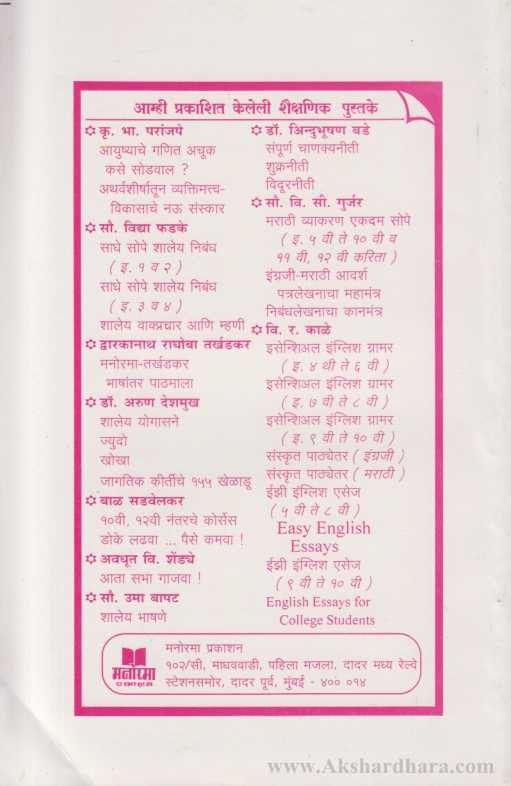 आम्ही प्रकाशित केलेली शैक्षणिक पुस्तके
✡ कृ. भा. परांजपे
आयुष्याचे गणित अचूक
कसे सोडवाल ?
अथर्वशीर्षातून व्यक्तिमत्त्व-
विकासाचे नऊ संस्कार
✡ सौ. विद्या फडके
साधे सोपे शालेय निबंध
( इ. १ व २ )
साधे सोपे शालेय निबंध
( इ. ३ व ४ )
शालेय वाक्प्रचार आणि म्हणी
✡ द्वारकानाथ राघोबा तर्खडकर
मनोरमा-तर्खडकर
भाषांतर पाठमाला
✡ डॉ. अरुण देशमुख
शालेय योगासने
ज्युदो
खोखा
जागतिक कीर्तीचे १५५ खेळाडू
✡ बाळ सडवेलकर
१०वी, १२वी नंतरचे कोर्सेस
डोके लढवा ... पैसे कमवा !
✡ अवधूत वि. शेंड्ये
आता सभा गाजवा !
✡ सौ. उमा बापट
शालेय भाषणे
✡ डॉ. इिन्दुभूषण बडे
संपूर्ण चाणक्यनीती
शुक्रनीती
विदूरनीती
✡ सौ. वि. सी. गुर्जर
मराठी व्याकरण एकदम सोपे
( इ. ५ वी ते १० वी व
११ वी, १२ वी करिता )
इंग्रजी-मराठी आदर्श
पत्रलेखनाचा महामंत्र
निबंधलेखनाचा कानमंत्र
✡ वि. र. काळे
इसेन्शिअल इंग्लिश ग्रामर
( इ. ४ थी ते ६ वी )
इसेन्शिअल इंग्लिश ग्रामर
( इ. ७ वी ते ८ वी )
इसेन्शिअल इंग्लिश ग्रामर
( इ. ९ वी ते १० वी )
संस्कृत पाठ्येतर ( इंग्रजी )
संस्कृत पाठ्येतर ( मराठी )
ईझी इंग्लिश एसेज
( ५ वी ते ८ वी )
Easy English
Essays
ईझी इंग्लिश एसेज
( ९ वी ते १० वी )
English Essays for
College Students
मनोरमा
मनोरमा प्रकाशन
१०२/सी, माधववाडी, पहिला मजला, दादर मध्य रेल्वे
स्टेशनसमोर, दादर पूर्व, मुंबई - ४०० ०१४
www.Akshardhara.com